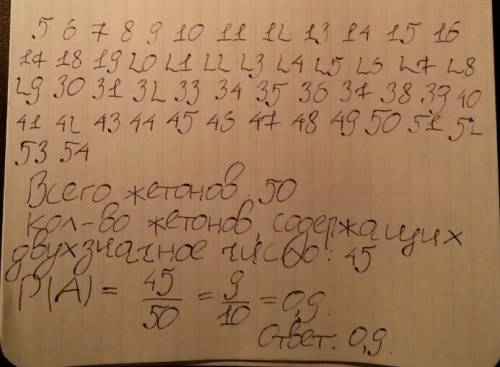 5 6 7 8 9 10 11 12 13 14 15 16
17 18 19 20 21 22 23 24 25 26 27 28
29 30 31 32 33 34 35 36 37 38 39 40
41 42 43 44 45 46 47 48 49 50 51 52
53 54
Всего жетонов: 50
Кол-во жетонов, содержащих
двухзначное число: 45
P(A) = 45/50 = 9/10 = 0,9.
Ответ: 0,9.